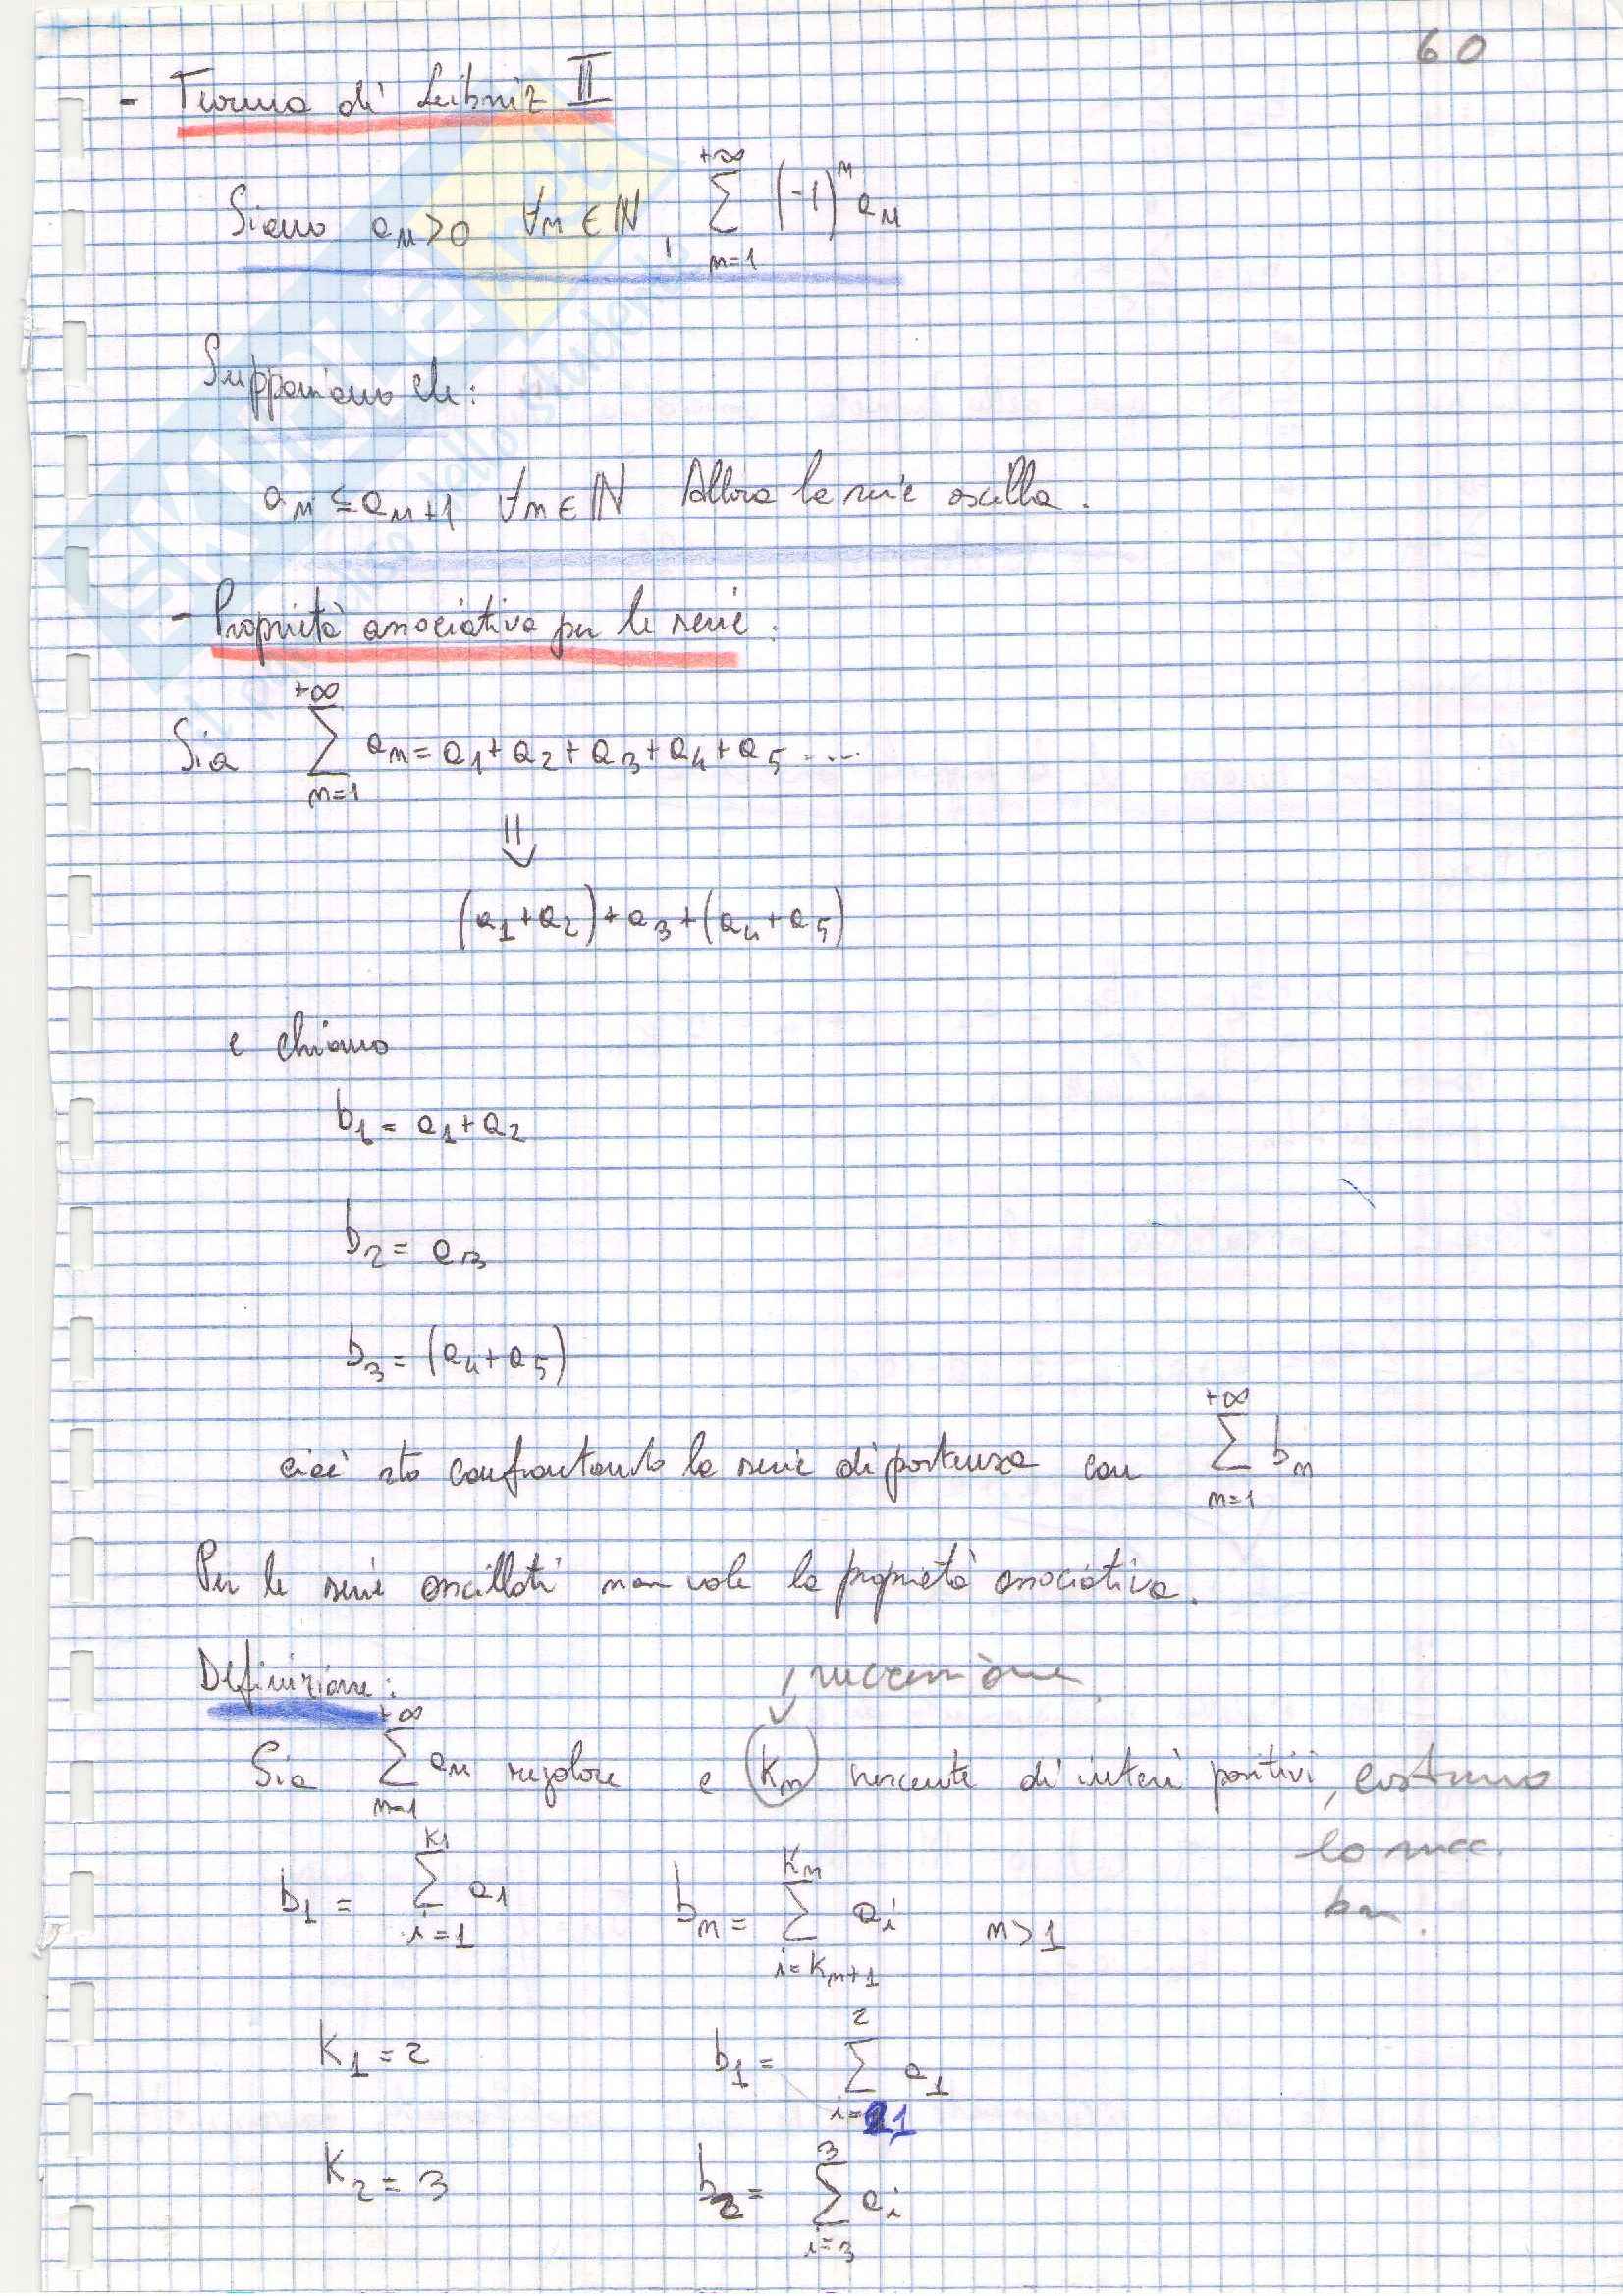 60
- Teorema di Leibniz II
Siano aₙ>0 ∀n∈ℕ, +∞ ∑ n=1 (-1)ⁿ aₙ
Supponiamo che:
aₙ ≤ aₙ₊₁ ∀n∈ℕ Allora la serie oscilla.
- Proprietà associativa per le serie.
Sia +∞ ∑ n=1 aₙ = a₁+a₂+a₃+a₄+a₅ ....
⇓
(a₁+a₂)+a₃+(a₄+a₅)
e chiamo
b₁ = a₁+a₂
b₂ = a₃
b₃ = (a₄+a₅)
cioè sto confrontando la serie di partenza con +∞ ∑ n=1 bₙ
Per le serie oscillati non vale la proprietà associativa.
Definizione: successione
Sia +∞ ∑ n=1 aₙ regolare e kₙ crescente di interi positivi, costruiamo
la succ.
b₁ = k₁ ∑ i=1 a₁ bₙ = kₙ ∑ i=kₙ₊₁ aᵢ n>1 bₙ.
K₁=2 b₁ = 2 ∑ i=1 a₁
K₂=3 b₂ = 3 ∑ i=3 aᵢ